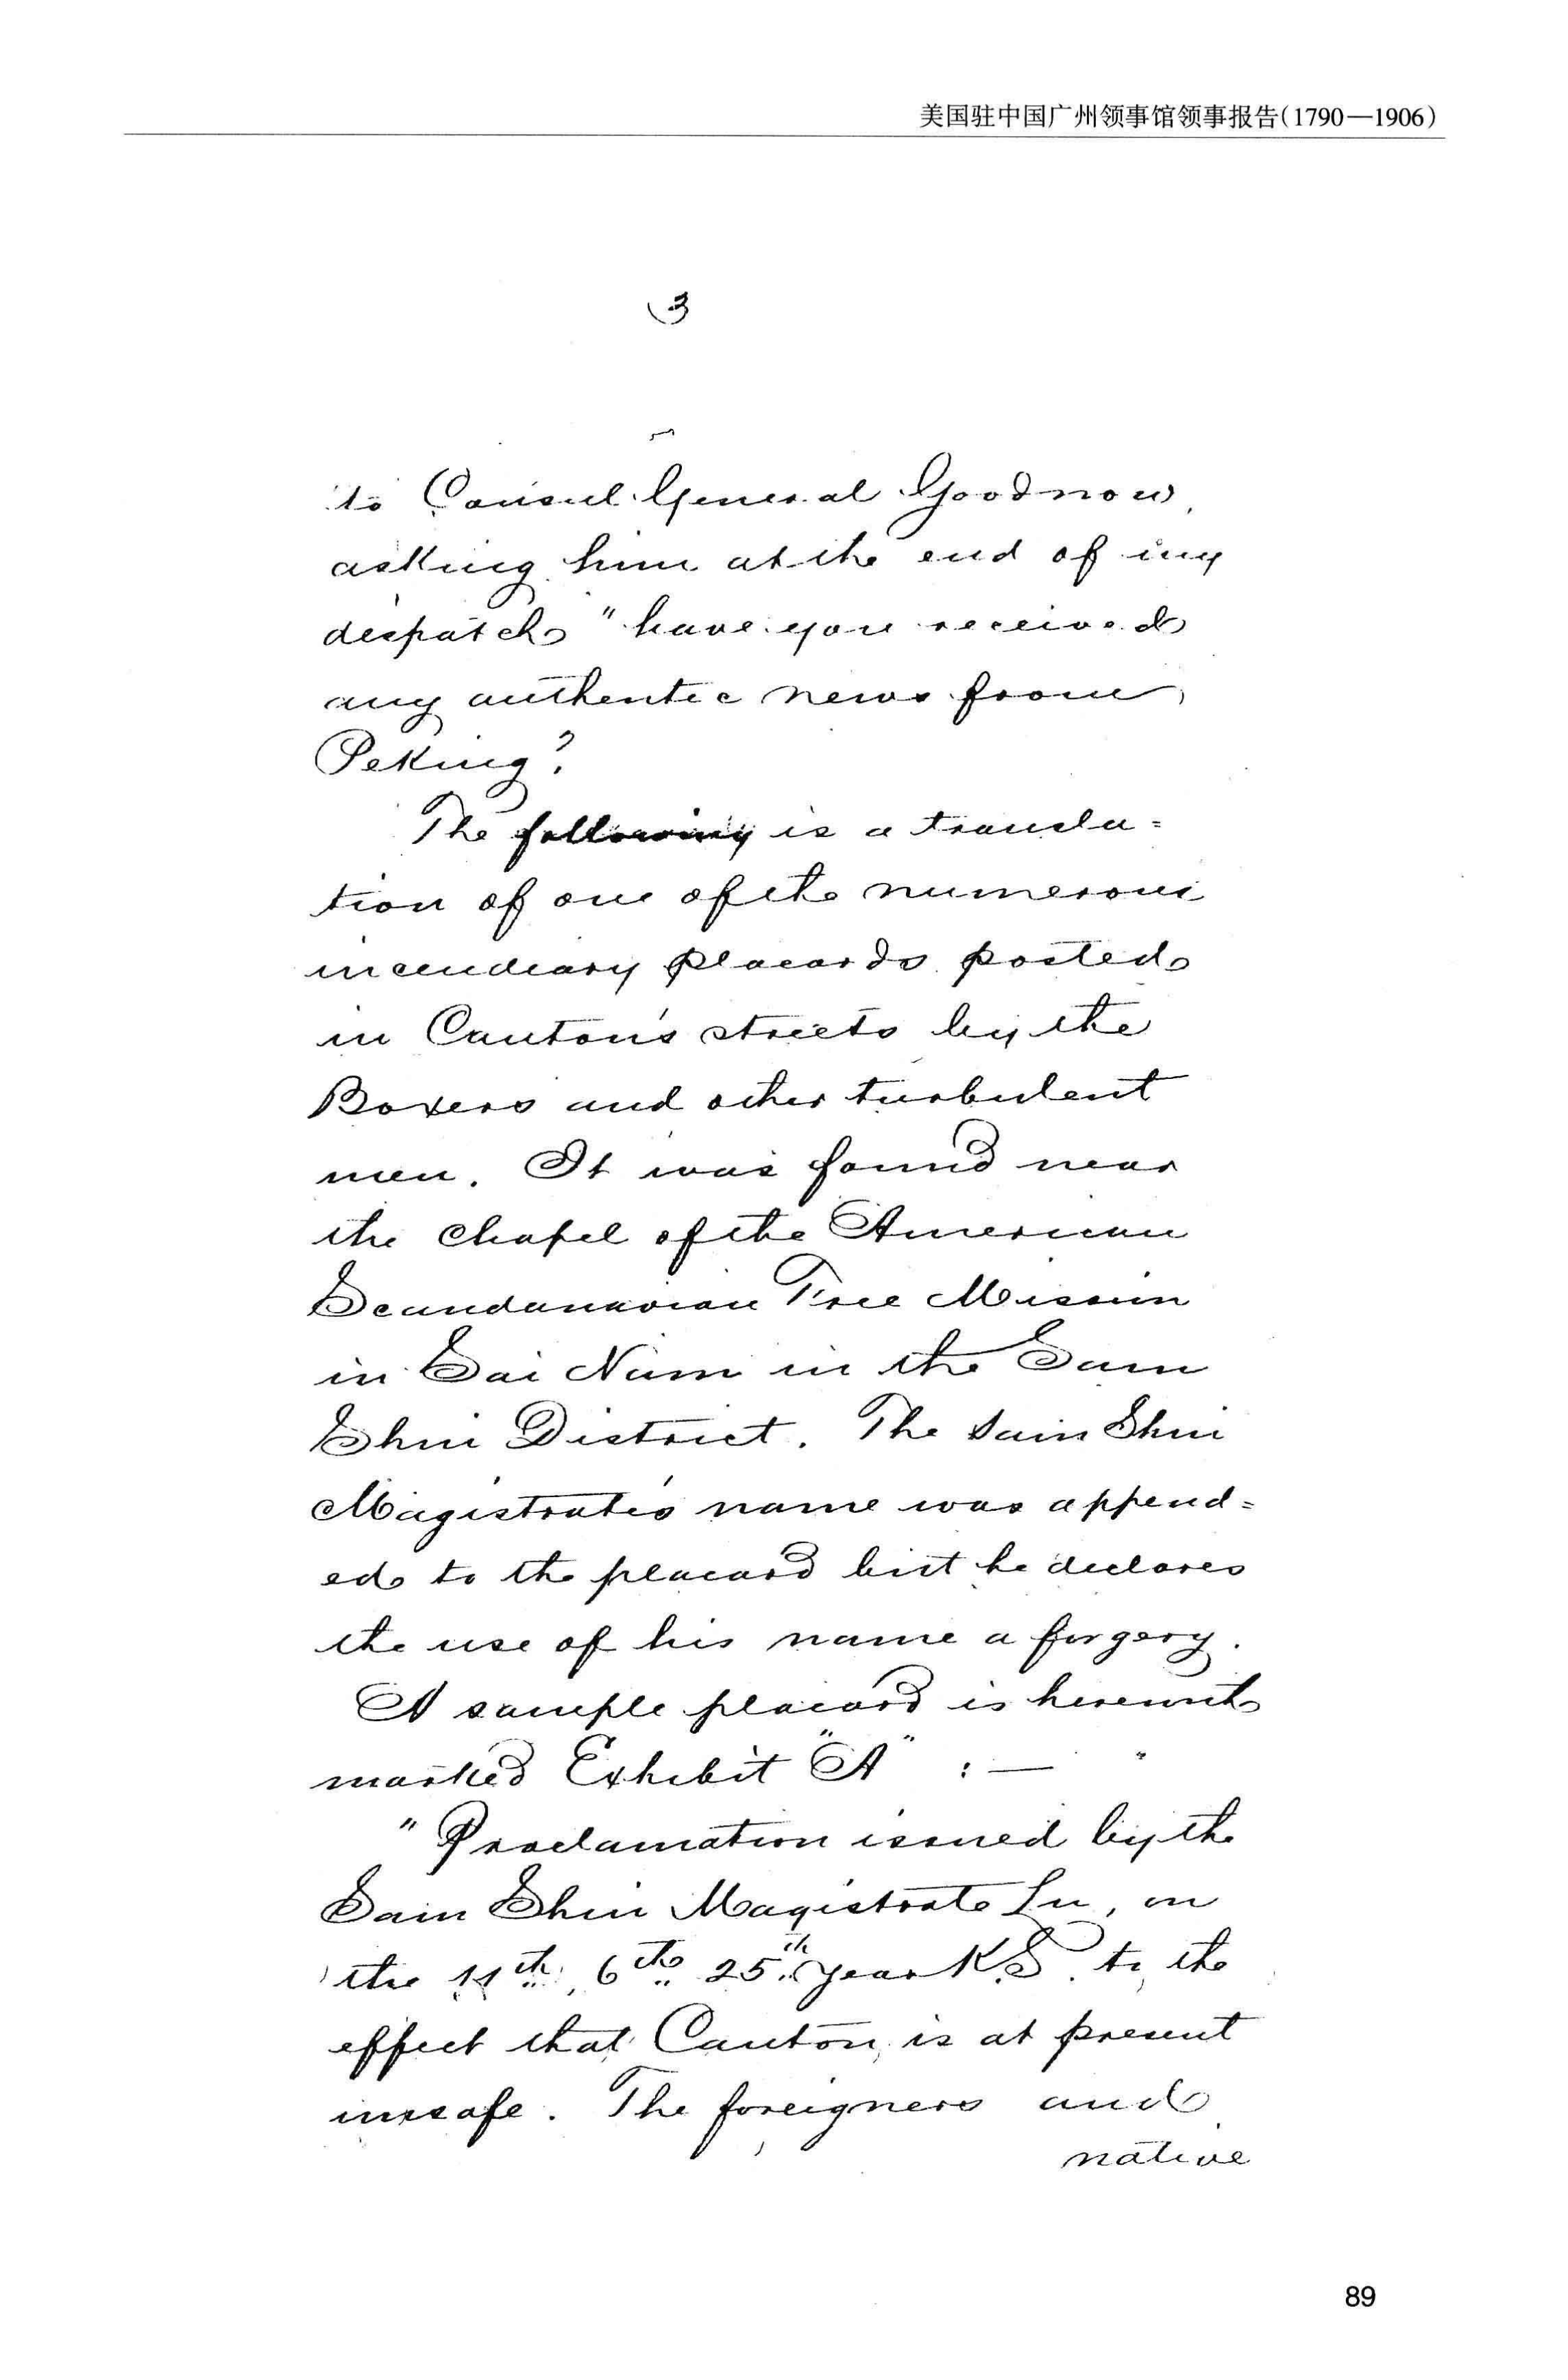 美国驻中国广州领事馆领事报告(1790—1906)
(3
to Consul General Goodnow
asking him at the end of my
despatch "have you received
any authentic news from
Peking?
The following is a transla=
tion of one of the numerous
incendiary placards posted
in Canton's streets by the
Boxers and other turbulent
men. It was found near
the chapel of the American
Scandanavian Free Mission
in Sai Nam in the Sam
Shui District. The Sam Shui
Magistrate's name was append=
ed to the placard but he declares
the use of his name a forgery.
A sample placard is herewith
marked Exhibit "A" :—
"Proclamation issued by the
Sam Shui Magistrate Lu, on
the 11th, 6th 25th year K.S. to the
effect that Canton is at present
unsafe. The foreigners and
native
89